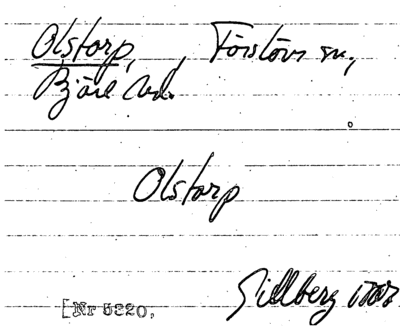 Olstorp, , Förslövs sn.,
Bjäre hd.
Olstorp
Gillberg 1767
[Nr 5320.